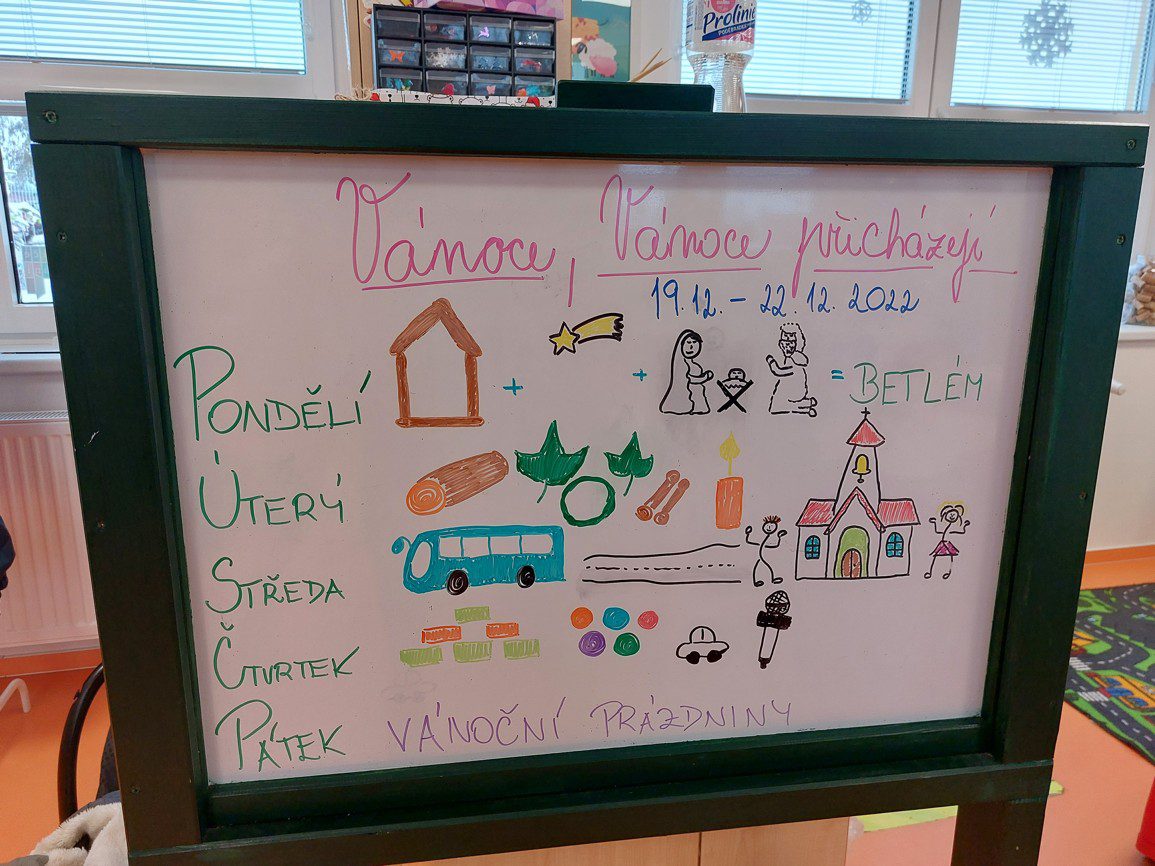 Prolinie
Vánoce, Vánoce přicházejí
19.12. - 22.12.2022
PONDĚLÍ + + = BETLÉM
ÚTERÝ
STŘEDA
ČTVRTEK
PÁTEK VÁNOČNÍ PRÁZDNINY